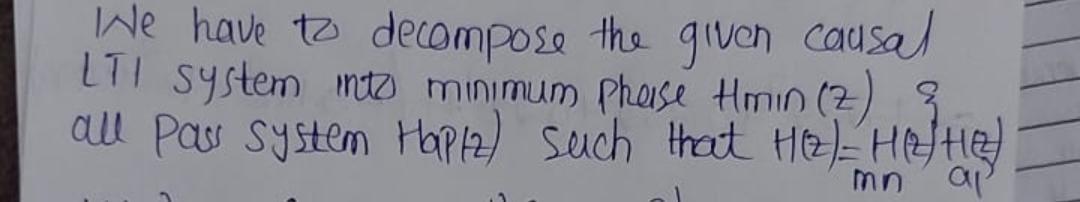 We have to decompose the given causal
LTI system into minimum phase Hmin(z) &
all Pass system Hap(z) such that H(z)=H(z)H(z)
mn ap